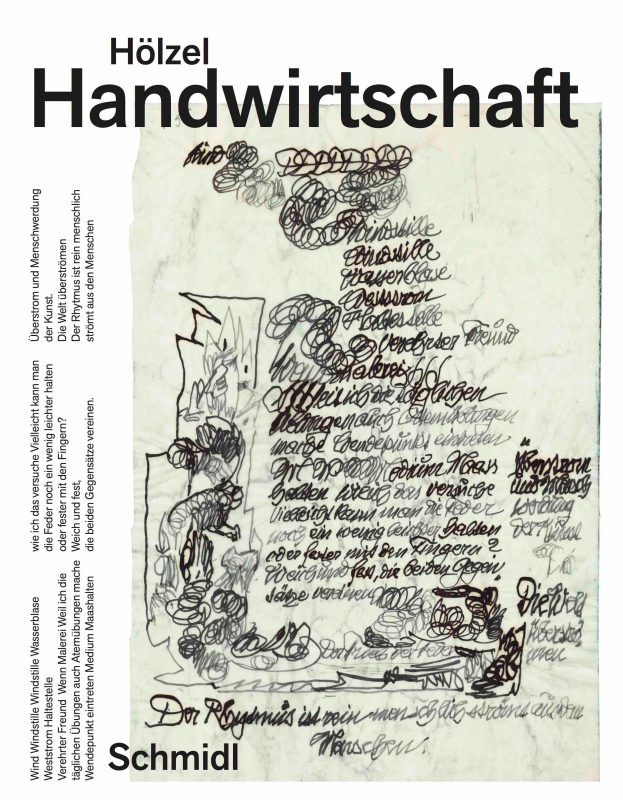 Hölzel
Handwirtschaft
Wind Windstille Windstille Wasserblase
Weststrom Haltestelle
Verehrter Freund Wenn Malerei Weil ich die
täglichen Übungen auch Atemübungen mache
Wendepunkt eintreten Medium Maashalten
wie ich das versuche Vielleicht kann man
die Feder noch ein wenig leichter halten
oder fester mit den Fingern?
Weich und fest,
die beiden Gegensätze vereinen.
Überstrom und Menschwerdung
der Kunst.
Die Welt überströmen
Der Rhytmus ist rein menschlich
strömt aus den Menschen
Wind
Windstille
Windstille
Wasserblase
Weststrom
Haltestelle
Verehrter Freund
Wenn Malerei
Weil ich die täglichen
Übungen auch Atemübungen
mache Wendepunkt eintreten
Medium Maas
halten wie ich das versuche
Vieleicht kann man die Feder
noch ein wenig leichter halten
oder fester mit den Fingern?
Weich und fest, die beiden Gegen
sätze vereinen
Überstrom
und Mensch
werdung
der Kunst
Die Welt
überströ
men
Der Rhytmus ist rein menschlich strömt aus den
Menschen.
Schmidl